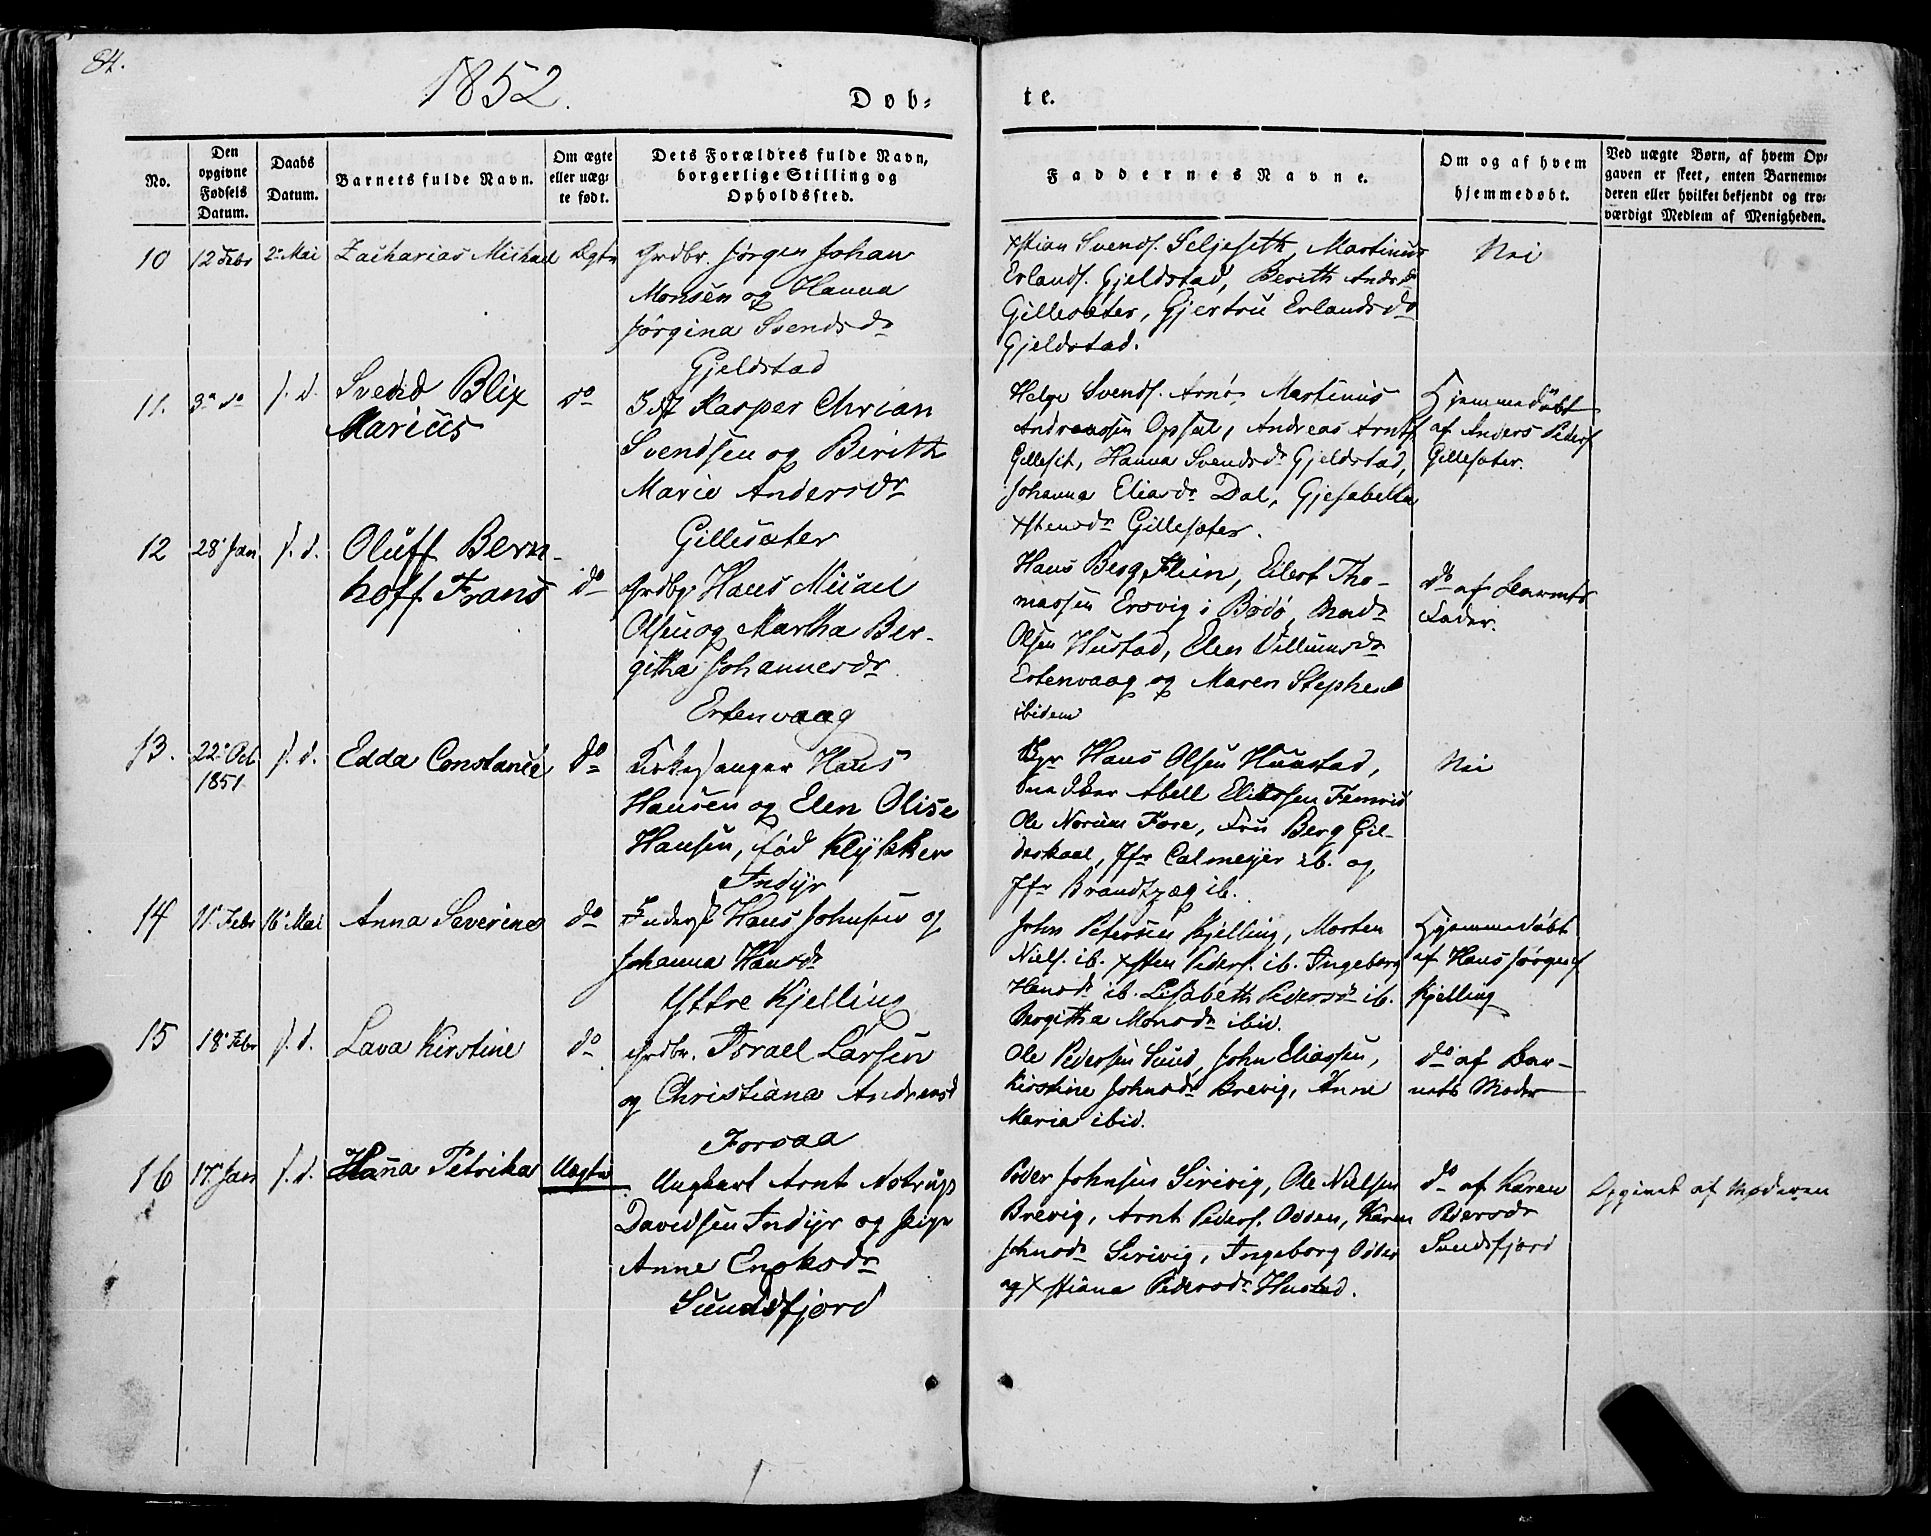 84.
1852.
Døb-
te.
No.
Den opgivne Fødsels Datum.
Daabs Datum.
Barnets fulde Navn.
Om ægte eller uægte født.
Dets Forældres fulde Navn, borgerlige Stilling og Opholdssted.
Faddernes Navne.
Om og af hvem hjemmedøbt.
Ved uægte Børn, af hvem Opgaven er skeet, enten Barnemoderen eller hvilket bekjendt og troværdigt Medlem af Menigheden.
10 12 Febr 2 Mai Zacharias Michael Ægte
Grdbr. Jørgen Johan
Monsen og Hanna
Jørgina Svendsdr
Gjeldstad
Xstian Svends. Seljeseth, Martinus
Erlands. Gjeldstad, Berith Andrsdr
Gillesæter, Gjertru Erlandsdr
Gjeldstad.
Nei
11. 3 do s. d. Svend Blix
Marius
do
Kasper Chrian
Svendsen og Berith
Marie Andersdr
Gillesæter
Helge Svends. Arnø, Martinus
Andreassen Opsal, Andreas Arntz
Gilleset, Hanna Svendsdr Gjeldstad,
Johanna Eliasdr Dal, Gjesabella
Xstensdr Gillesæter.
Hjemmedøbt
af Anders Peders
Gillesæter.
12 28 Jan s. d. Oluff Bern-
hoff Frans
do
Grdbr Hans Misael
Olsen og Martha Ber-
githa Johannesdr
Ertenvaag
Hans Berg Flein, Eilert Tho-
massen Ersvig i Bodø,
Olsen Hustad, Elen Villumsdr
Ertenvaag og Maren Stephens
ibidem
do af Barnets
Fader.
13. 22 Oct
1851
s. d. Edda Constance do
Kirkesanger Hans
Hansen og Elen Olise
Hansen, fød Klykken
Indyr
Hans Olsen Huustad,
Snedker Abell Eliassen
Ole Norum Fore, Fru Berg Gil-
deskaal, Jfr Calmeyer ib. og
Jfr Brandtzæg ib.
Nei
14 11 Febr 16 Mai Anna Severine do
Inderst Hans Johnsen og
Johanna Hansdr
Yttre Kjelling
John Petersen Kjelling, Morten
Niels. ib. Xsten Peders. ib. Ingeborg
Hansdr ib. Lisabeth Pedersdr ib.
Bergitha Monsdr ibid.
Hjemmedøbt
af Hans Jørgens
Kjelling
15 18 Febr s. d. Lava Kirstine do
Grdbr. Israel Larsen
og Christiana Andreasd
Forsaa
Ole Pedersen Sund, John Eliassen,
Kirstine Johnsdr Brevig, Anne
Maria ibid.
do af Bar-
nets Moder
16 17 Jan s. d. Hanna Petrikka Uægte
Ungkarl Arnt Astrup
Davidsen Indyr og Pige
Anne Enoksdr
Sundsfjord
Peder Johnsen Sirivig, Ole Nielsen
Brevig, Arnt Peders. Odden, Karen
Johnsdr Sirivig, Ingeborg Odden
og Xstiana Pedersdr Hustad.
do af Karen
Pedersdr
Sundsfjord
Opgivet af Moderen